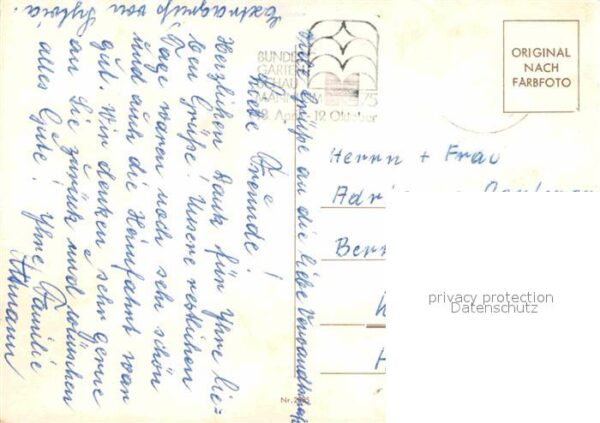 Liebe Freunde!
Herzlichen Dank für Ihre lie=
ben Grüße! Unsere restlichen
Tage waren noch sehr schön
und auch die Heimfahrt war
gut. Wir denken sehr gerne
an Sie zurück und wünschen
alles Gute! Ihre Familie
Extragruß von Sylvia.
Viele Grüße an die liebe Verwandtschaft
BUNDES
GARTEN
SCHAU
MANNHEIM 75
18. April - 12 Oktober
ORIGINAL
NACH
FARBFOTO
Herrn + Frau
privacy protection
Datenschutz
Nr.